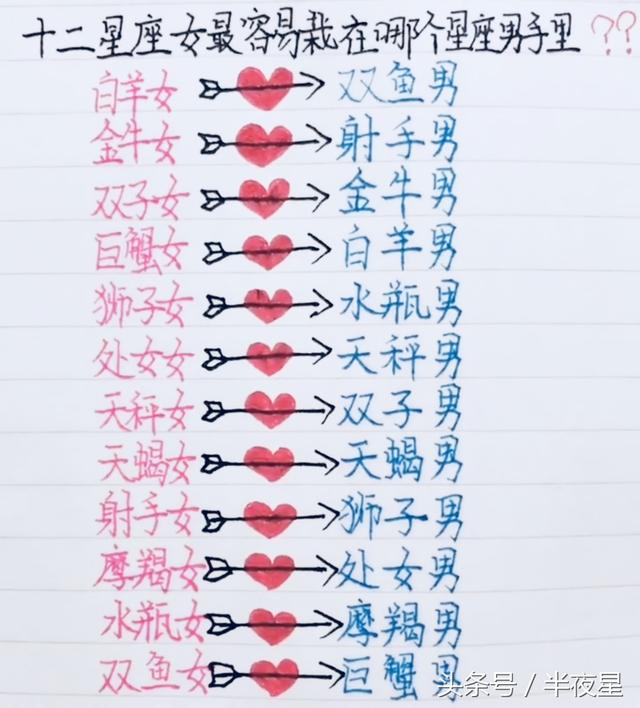 十二星座女最容易栽在哪个星座男手里??
白羊女 双鱼男
金牛女 射手男
双子女 金牛男
巨蟹女 白羊男
狮子女 水瓶男
处女女 天秤男
天秤女 双子男
天蝎女 天蝎男
射手女 狮子男
摩羯女 处女男
水瓶女 摩羯男
双鱼女 巨蟹男
头条号 / 半夜星